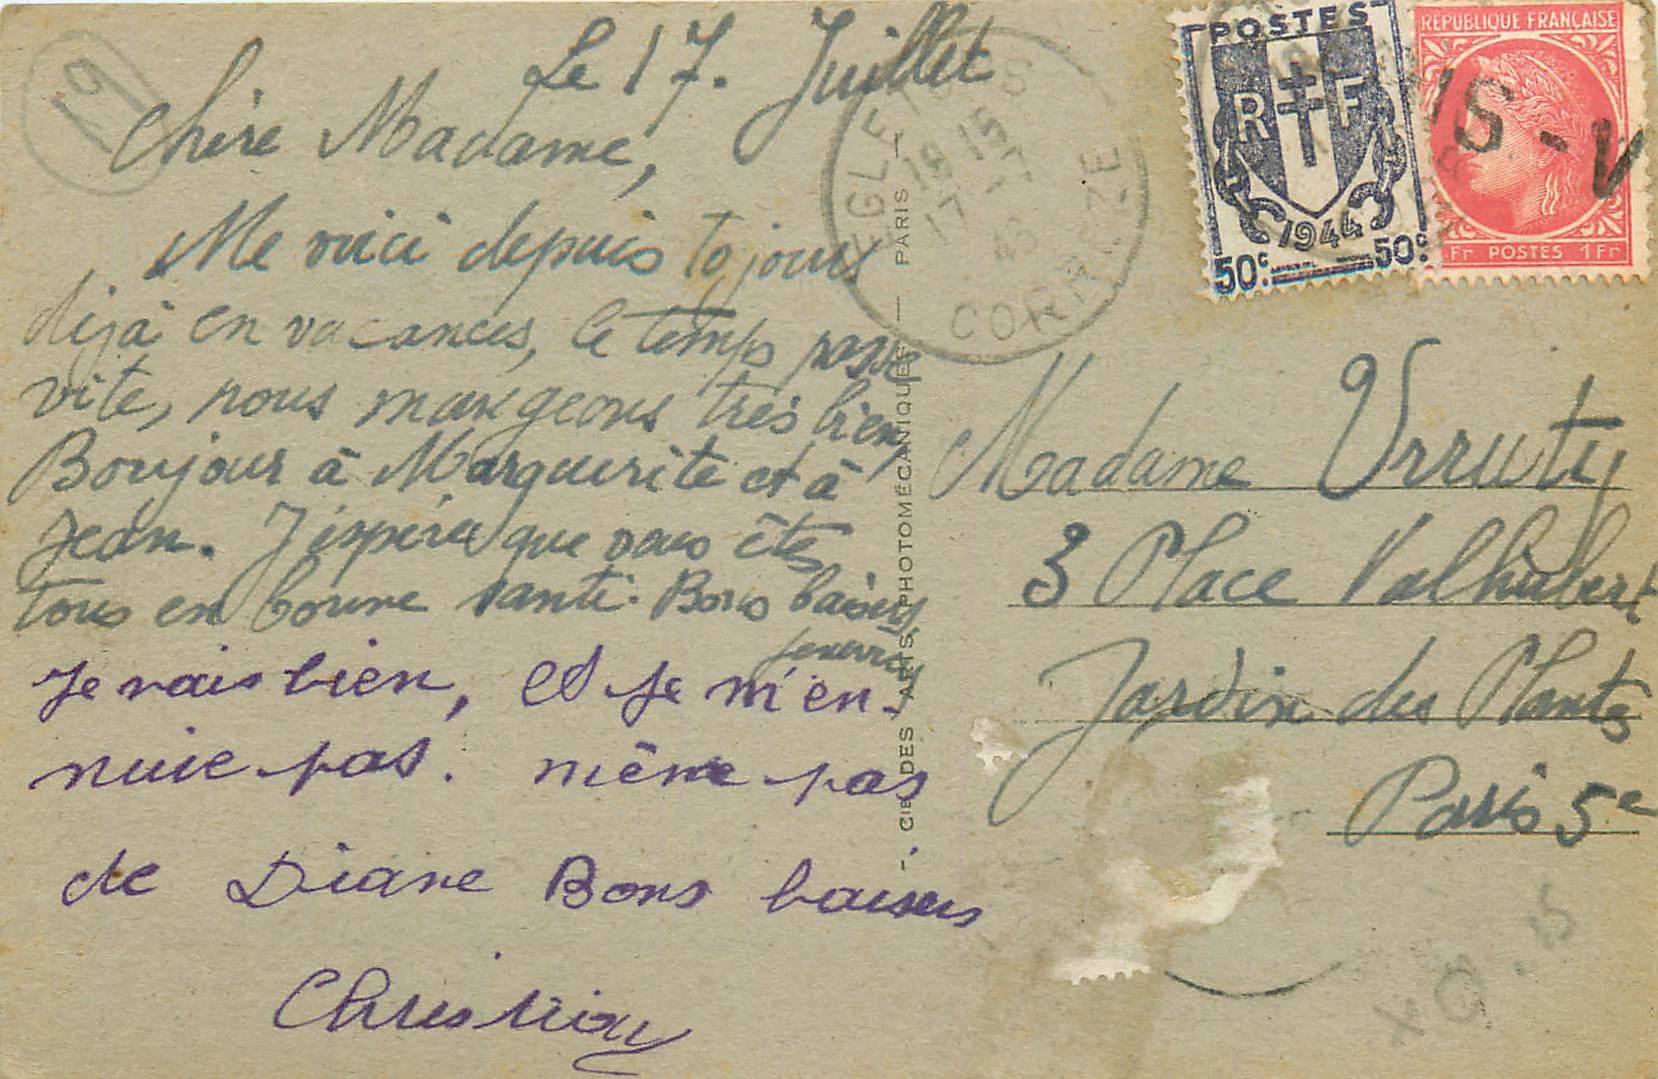 Le 17. Juillet
Chère Madame,
Me voici depuis 10 jours
déjà en vacances, le temps passe
vite, nous mangeons très bien,
Bonjour à Marguerite et à
Jean. J'espère que vous êtes
tous en bonne santé. Bons baisers
Je vais bien, et je m'en-
nuie pas. même pas
de Diane Bons baisers
Christian
CIE DES ARTS PHOTOMÉCANIQUES — PARIS —
EGLETONS
18 15
17 - 7
CORRÈZE
POSTES
R F
1944
50c 50c
RÉPUBLIQUE FRANÇAISE
1Fr POSTES 1Fr
Madame Urruty
3 Place Valhubert
Jardin des Plantes
Paris 5e